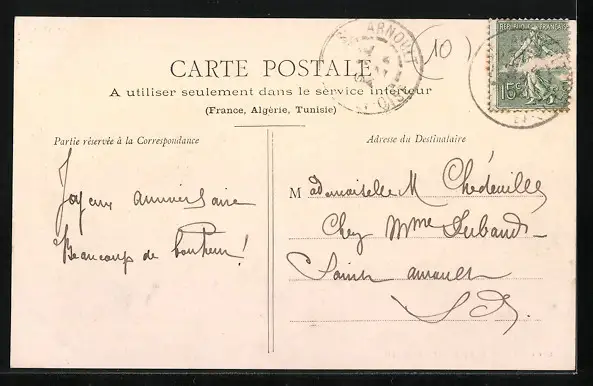 ARNOULT
(10)
REPUBLIQUE FRANÇAISE
15c
CARTE POSTALE
A utiliser seulement dans le service intérieur
(France, Algérie, Tunisie)
Partie réservée à la Correspondance
Adresse du Destinataire
Joyeux anniversaire
Beaucoup de bonheur!
Mademoiselle M Chédeville
Chez Mme Duband
Saint Arnoult
S. O.